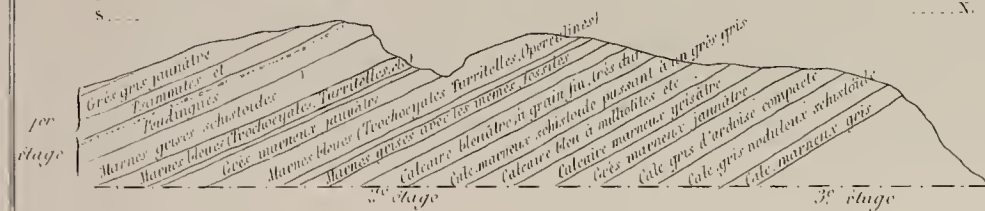 S....
.....N.
Grès gris jaunâtre
Psammites et
Poudingues
Marnes grises schistoïdes
Marnes bleues (Trochocyates, Turritelles, etc)
Grès marneux jaunâtre
Marnes bleues (Trochocyates Turritelles, Operculines)
Marnes grises avec les mêmes fossiles
Calcaire bleuâtre, à grain fin, très dur
Calc. marneux schistoïde passant à un grès gris
Calcaire bleu à miliolites etc.
Calcaire marneux grisâtre
Grès marneux jaunâtre
Calc gris d'ardoise compacte
Calc. gris noduleux schistoïde
Calc. marneux gris
1er
étage
2e étage
3e étage